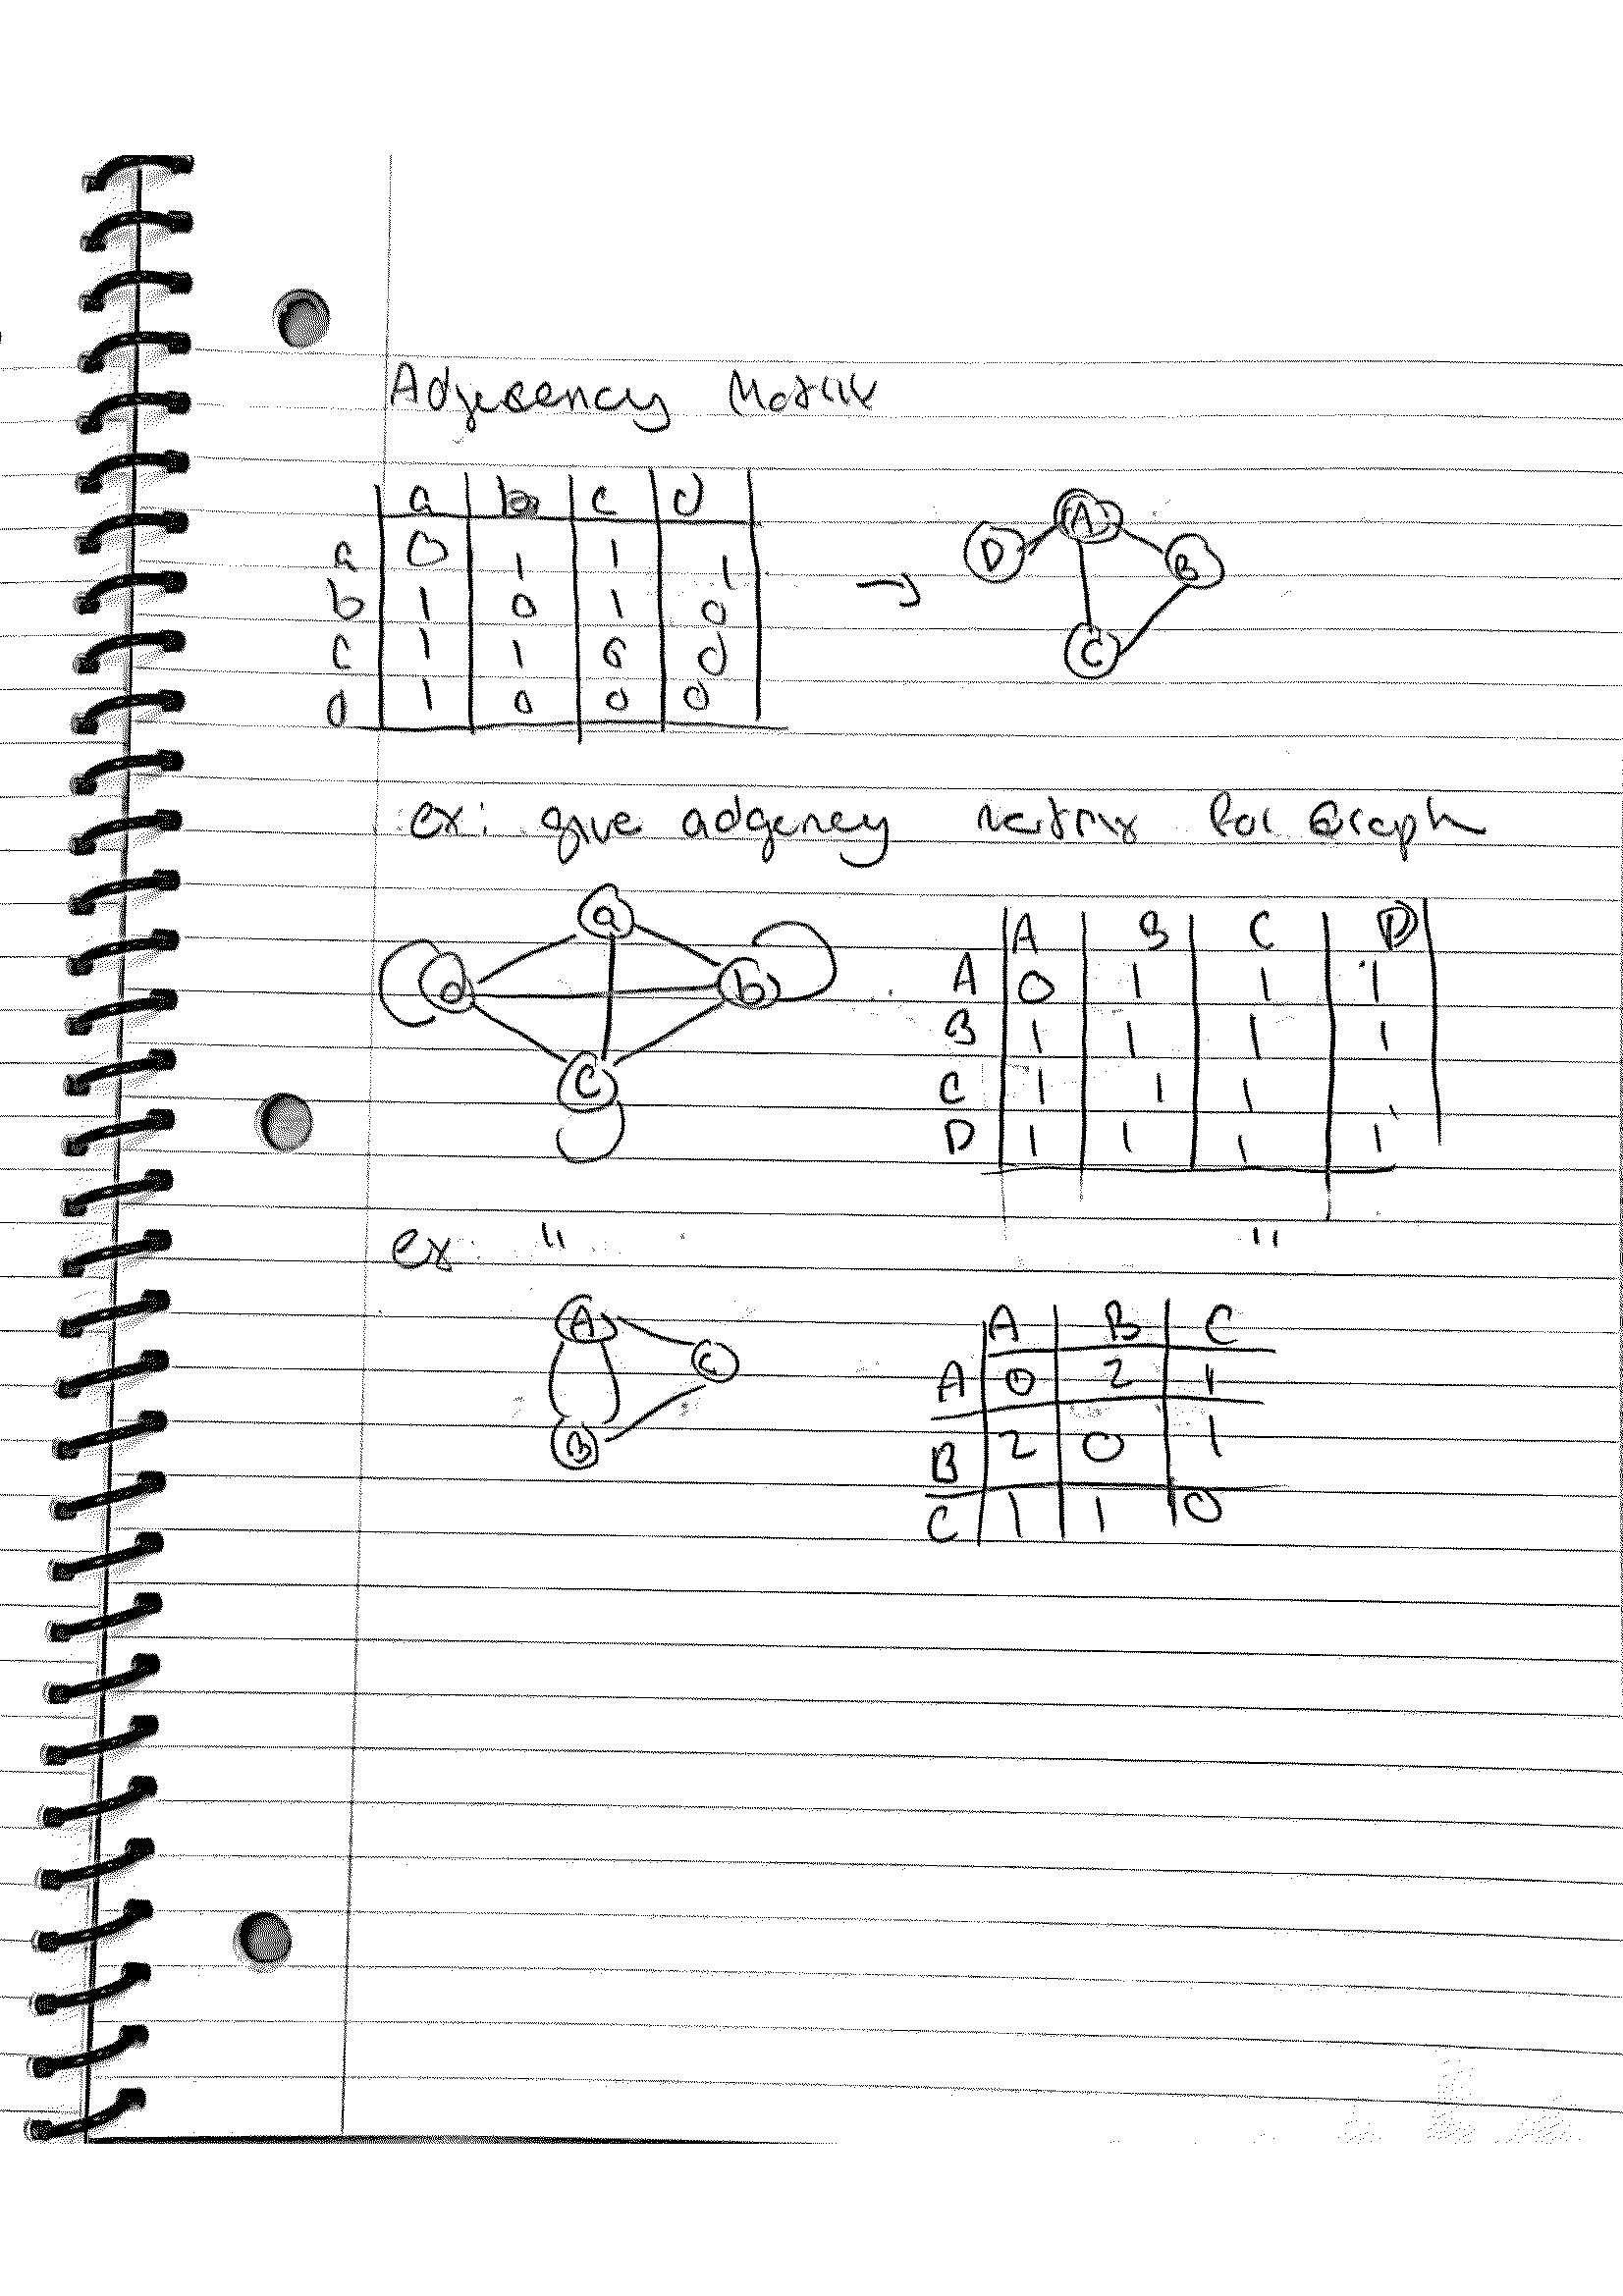 Adjecency Matrix
a b c d
a 0 1 1 1
b 1 0 1 0
c 1 1 0 0
d 1 0 0 0
→
A
D
B
C
ex: give adgeney matrix for Graph
a
d
b
C
A B C D
A 0 1 1 1
B 1 1 1 1
C 1 1 1
D 1 1 1 1
ex: " "
A
C
B
A B C
A 0 2 1
B 2 0 1
C 1 1 0